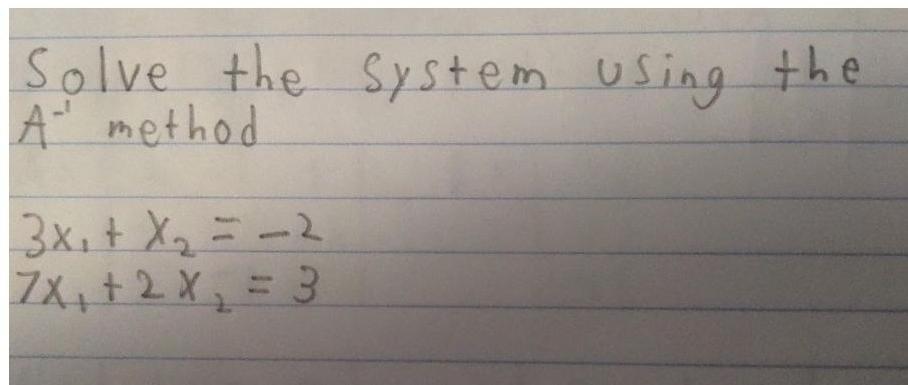 Solve the system using the
A⁻¹ method
3x₁ + x₂ = -2
7x₁ + 2x₂ = 3